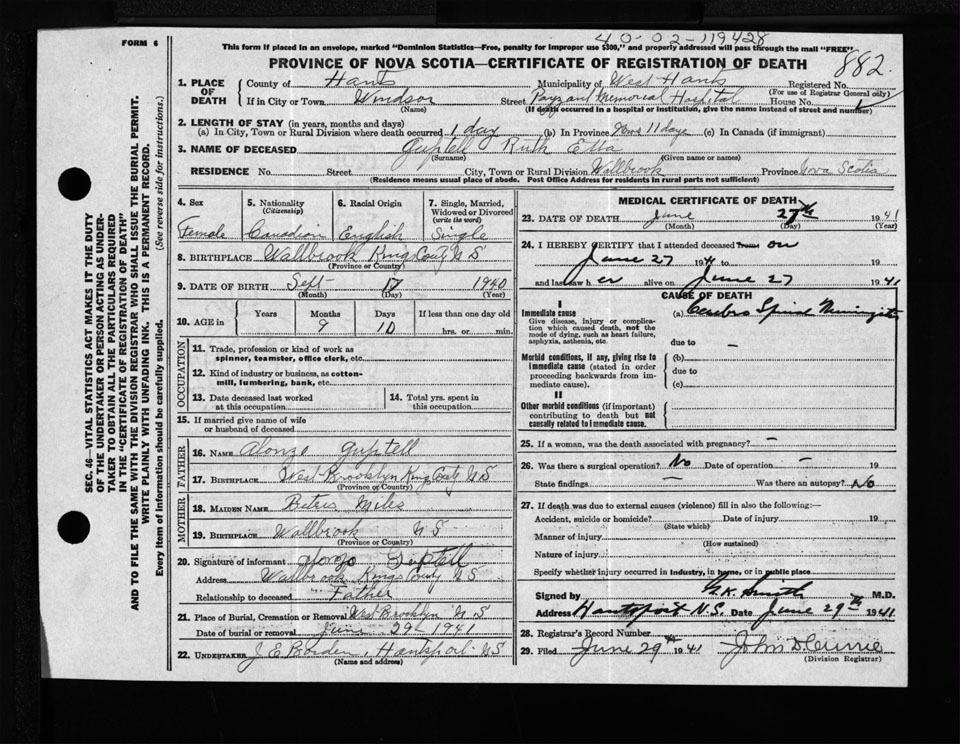 40-02-119428
FORM 6
This form if placed in an envelope, marked "Dominion Statistics—Free, penalty for improper use $300," and properly addressed will pass through the mail "FREE"
PROVINCE OF NOVA SCOTIA—CERTIFICATE OF REGISTRATION OF DEATH
882
SEC. 46—VITAL STATISTICS ACT MAKES IT THE DUTY
OF THE UNDERTAKER OR PERSON ACTING AS UNDER-
TAKER TO OBTAIN ALL THE PARTICULARS REQUIRED
IN THE "CERTIFICATE OF REGISTRATION OF DEATH"
AND TO FILE THE SAME WITH THE DIVISION REGISTRAR WHO SHALL ISSUE THE BURIAL PERMIT.
WRITE PLAINLY WITH UNFADING INK. THIS IS A PERMANENT RECORD.
Every item of information should be carefully supplied. (See reverse side for instructions.)
1. PLACE OF DEATH
County of Hants Municipality of West Hants Registered No.
(For use of Registrar General only)
If in City or Town Windsor Street Payzant Memorial Hospital House No.
(Name) (If death occurred in a hospital or institution, give the name instead of street and number)
2. LENGTH OF STAY (in years, months and days)
(a) In City, Town or Rural Division where death occurred 1 day (b) In Province 9 mos 11 days (c) In Canada (if immigrant)
3. NAME OF DECEASED Guptell Ruth Etta
(Surname) (Given name or names)
RESIDENCE No. Street City, Town or Rural Division Wallbrook Province Nova Scotia
(Residence means usual place of abode. Post Office Address for residents in rural parts not sufficient)
4. Sex 5. Nationality (Citizenship) 6. Racial Origin 7. Single, Married, Widowed or Divorced (write the word)
Female Canadian English Single
8. BIRTHPLACE Wallbrook Kings County N S
(Province or Country)
9. DATE OF BIRTH Sept 17 1940
(Month) (Day) (Year)
10. AGE in Years Months Days If less than one day old
9 10 hrs. or min.
OCCUPATION
11. Trade, profession or kind of work as
spinner, teamster, office clerk, etc.
12. Kind of industry or business, as cotton-
mill, lumbering, bank, etc.
13. Date deceased last worked
at this occupation
14. Total yrs. spent in
this occupation
15. If married give name of wife
or husband of deceased
FATHER
16. NAME Alonzo Guptell
17. BIRTHPLACE West Brooklyn Kings County N S
(Province or Country)
MOTHER
18. MAIDEN NAME Miles
19. BIRTHPLACE Wallbrook N S
(Province or Country)
20. Signature of informant Alonzo Guptell
Address Wallbrook Kings County N S
Relationship to deceased Father
21. Place of Burial, Cremation or Removal West Brooklyn N S
Date of burial or removal June 29 1941
22. UNDERTAKER J E Borden, Hantsport N S
(Name and address)
MEDICAL CERTIFICATE OF DEATH
23. DATE OF DEATH June 27th 1941
(Month) (Day)
24. I HEREBY CERTIFY that I attended deceased from on
June 27 1941 to 19
and last saw her alive on June 27 1941
CAUSE OF DEATH
I
Immediate cause
Give disease, injury or complica-
tion which caused death, not the
mode of dying, such as heart failure,
asphyxia, asthenia, etc.
(a) Cerebro Spinal Meningitis
due to —
Morbid conditions, if any, giving rise to
immediate cause (stated in order
proceeding backwards from im-
mediate cause).
(b)
due to
(c)
II
Other morbid conditions (if important)
contributing to death but not
causally related to immediate cause.
25. If a woman, was the death associated with pregnancy? —
26. Was there a surgical operation? No Date of operation — 19
State findings — Was there an autopsy? No
27. If death was due to external causes (violence) fill in also the following:
Accident, suicide or homicide? Date of injury 19
(State which)
Manner of injury
(How sustained)
Nature of injury
Specify whether injury occurred in industry, in home, or in public place
Signed by G.K. Smith M.D.
Address Hantsport N.S. Date June 29th 1941
28. Registrar's Record Number
29. Filed June 29th 1941 John D. Currie
(Division Registrar)